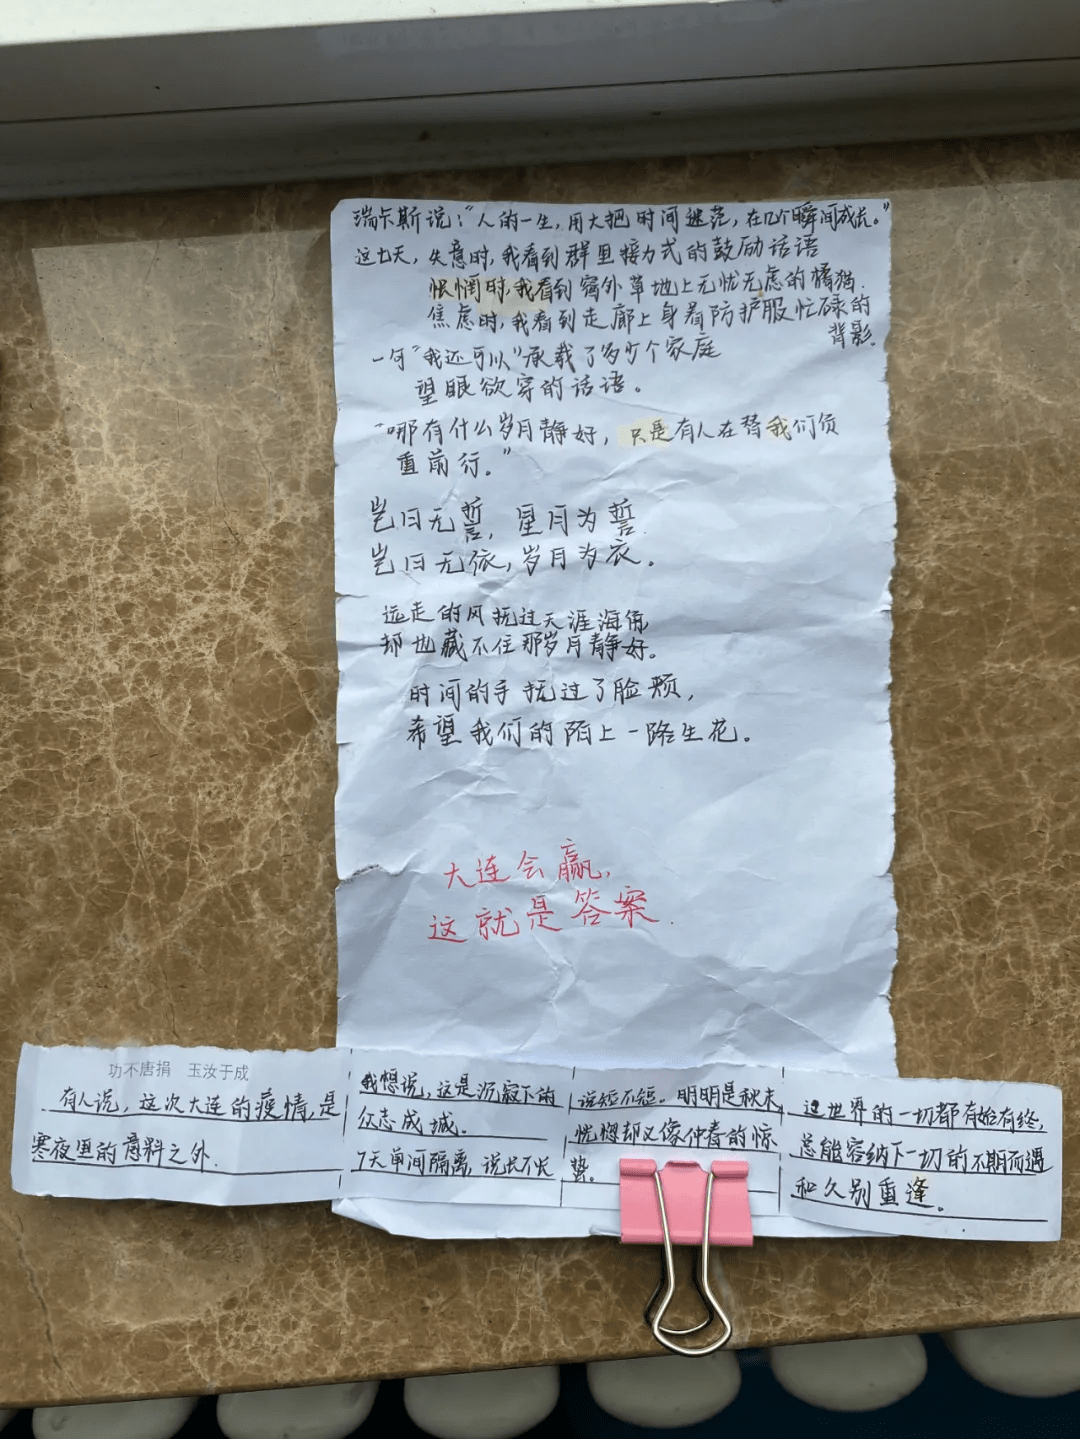 瑞卡斯说:“人的一生,用大把时间迷茫,在几个瞬间成长。”
这七天,失意时,我看到群里接力式的鼓励话语
怅惘时,我看到窗外草地上无忧无虑的橘猫.
焦虑时,我看到走廊上身着防护服忙碌的
背影.
一句“我还可以”承载了多少个家庭
望眼欲穿的话语。
“哪有什么岁月静好,只是有人在替我们负
重前行。”
岂曰无誓,星月为誓.
岂曰无依,岁月为衣。
远走的风抚过天涯海角,
却也藏不住那岁月静好。
时间的手抚过了脸颊,
希望我们的陌上一路生花。
大连会赢,
这就是答案.
功不唐捐 玉汝于成
有人说,这次大连的疫情,是
寒夜里的意料之外.
我想说,这是沉寂下的
众志成城。
7天单间隔离,说长不长
说短不短。明明是秋末,
恍惚却又像仲春的惊
蛰。
这世界的一切都有始有终,
总能容纳下一切的不期而遇
和久别重逢。